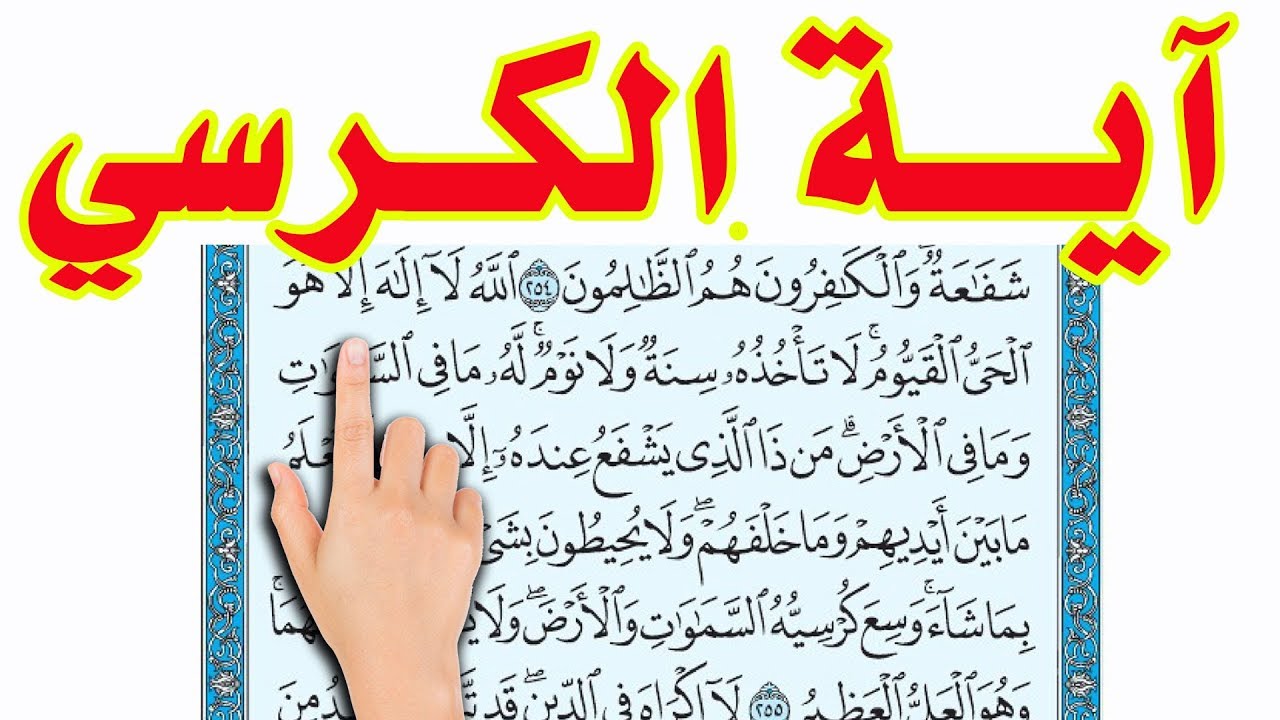 آية الكرسي
شَفَٰعَةٌۗ وَٱلْكَٰفِرُونَ هُمُ ٱلظَّٰلِمُونَ ٢٥٤ ٱللَّهُ لَآ إِلَٰهَ إِلَّا هُوَ
ٱلْحَىُّ ٱلْقَيُّومُۚ لَا تَأْخُذُهُۥ سِنَةٌ وَلَا نَوْمٌۚ لَّهُۥ مَا فِى
وَمَا فِى ٱلْأَرْضِۗ مَن ذَا ٱلَّذِى يَشْفَعُ عِندَهُۥٓ
مَا بَيْنَ أَيْدِيهِمْ وَمَا خَلْفَهُمْۖ وَلَا يُحِيطُونَ
بِمَا شَآءَۚ وَسِعَ كُرْسِيُّهُ ٱلسَّمَٰوَٰتِ وَٱلْأَرْضَۖ
وَهُوَ ٱلْعَلِىُّ ٱلْعَظِيمُ ٢٥٥ لَآ إِكْرَاهَ فِى ٱلدِّينِۖ مِنَ